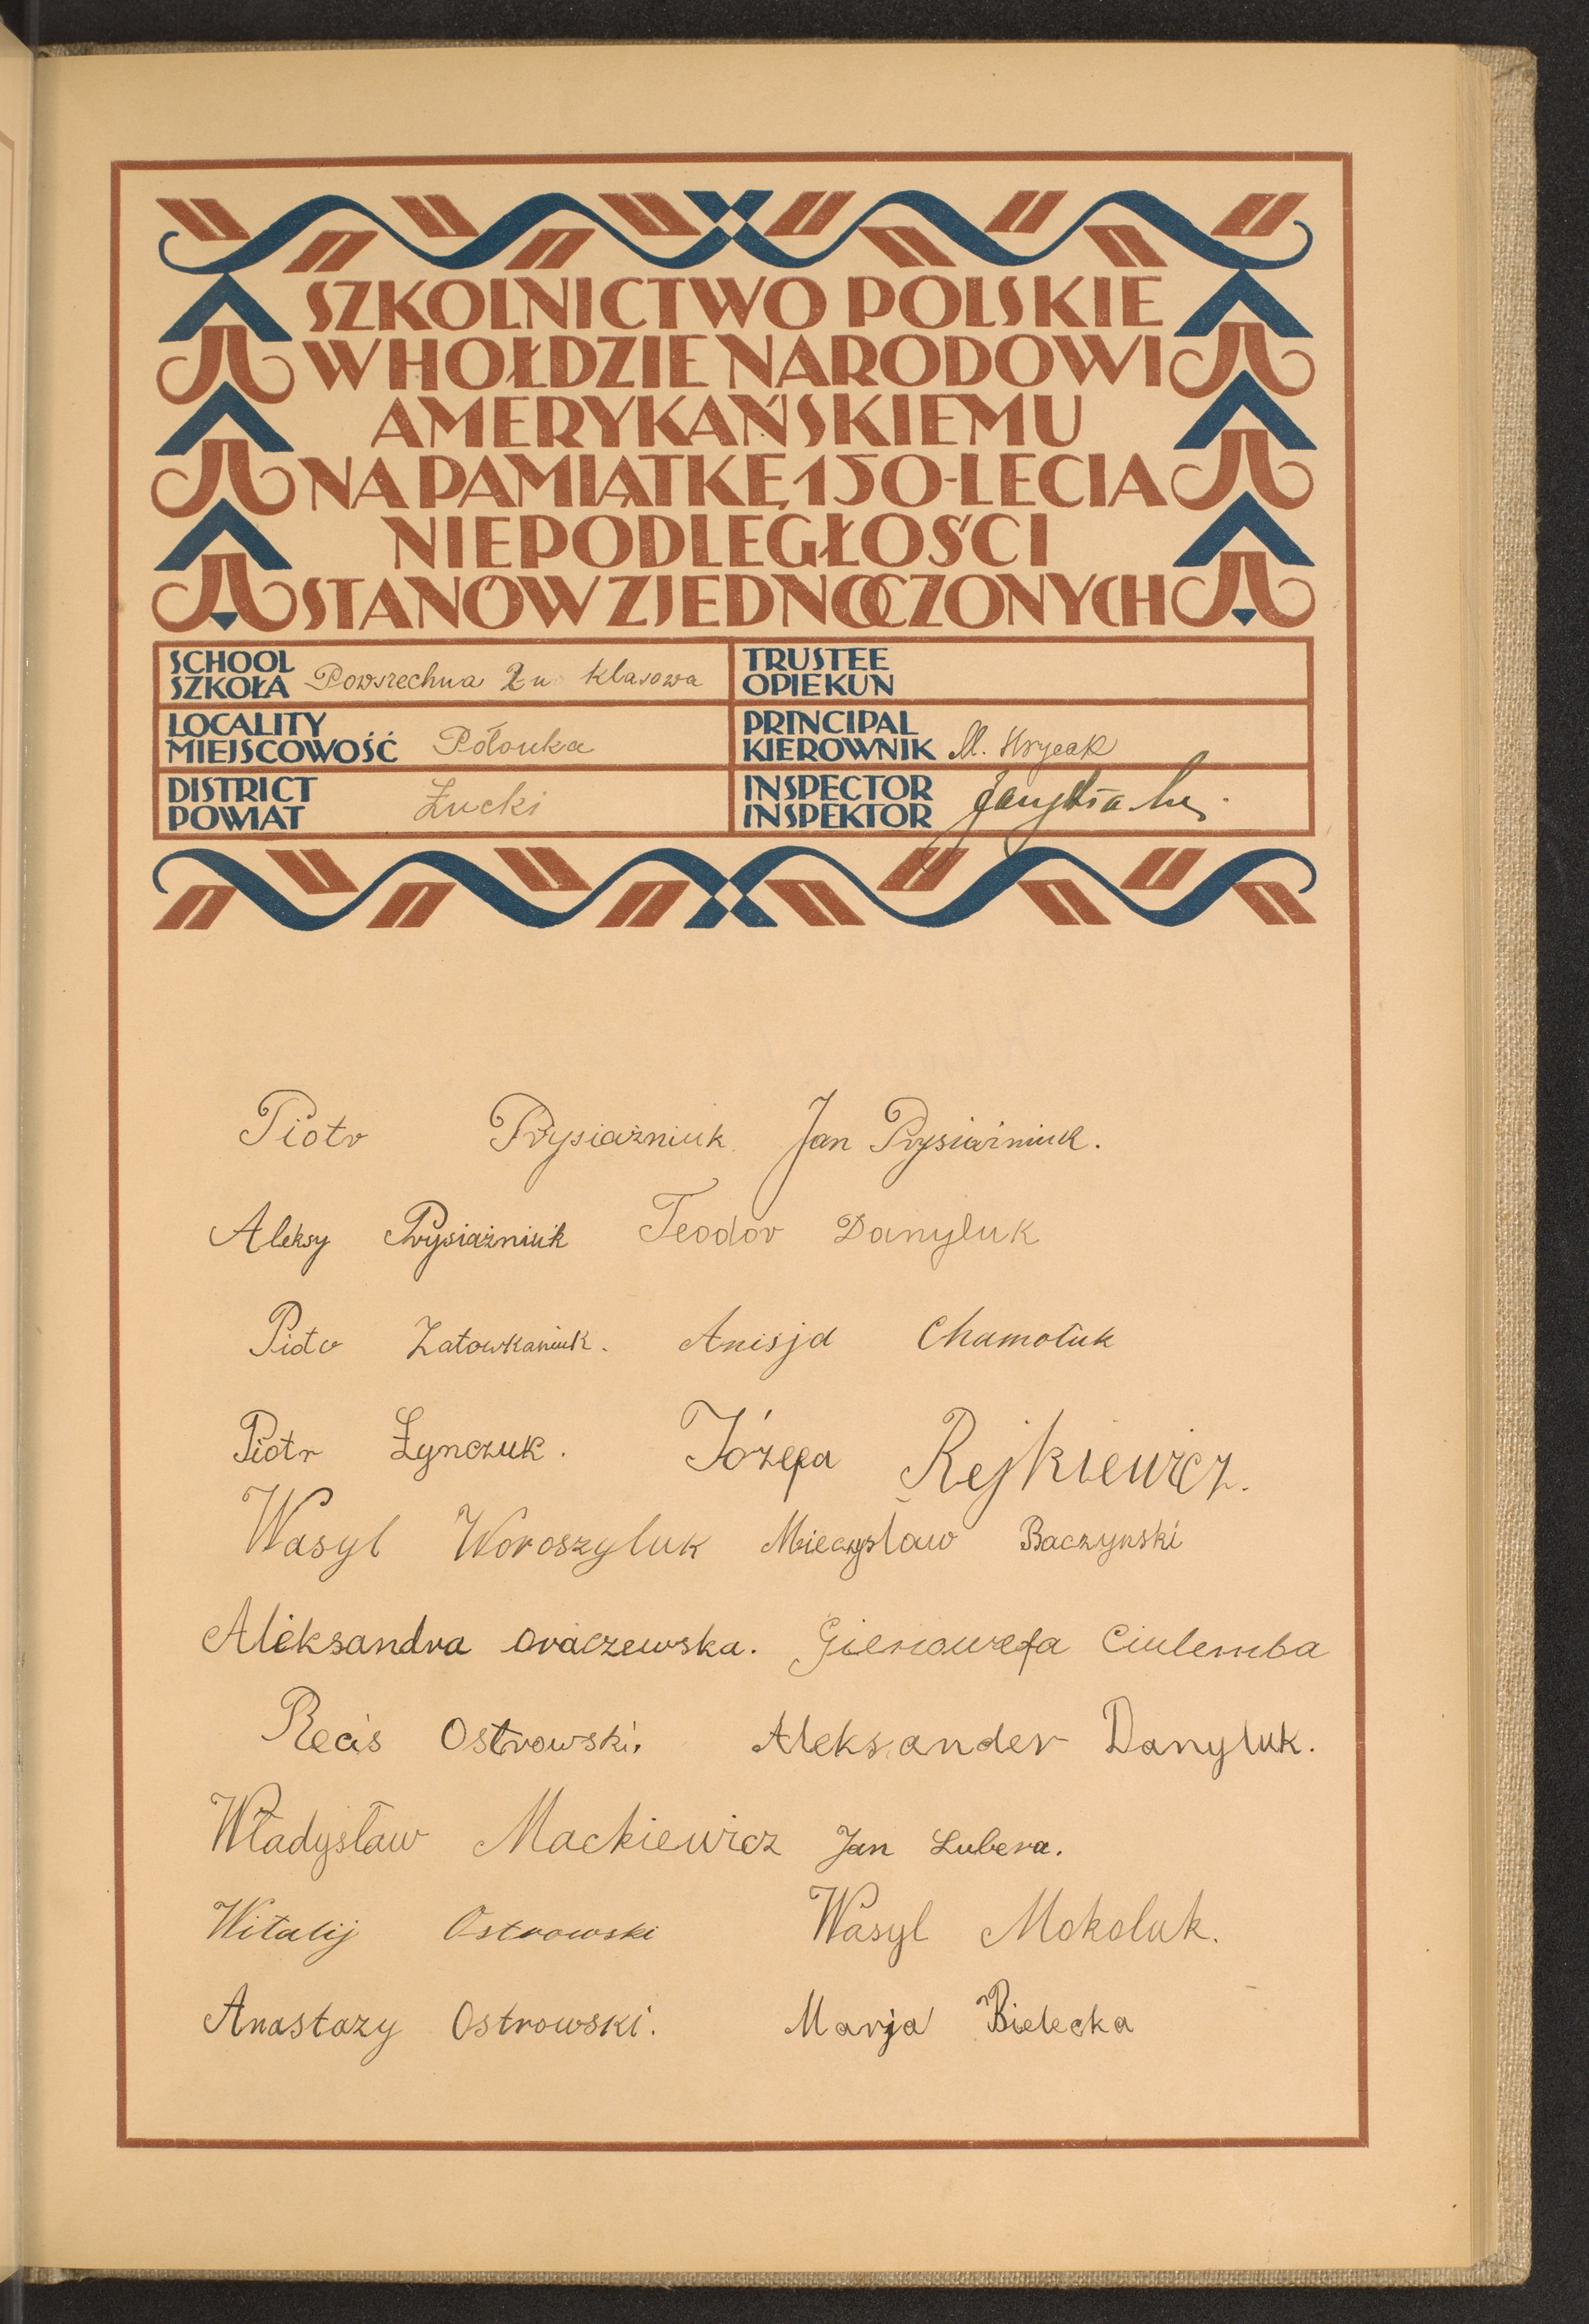 SZKOLNICTWO POLSKIE
W HOŁDZIE NARODOWI
AMERYKAŃSKIEMU
NA PAMIĄTKĘ 150-LECIA
NIEPODLEGŁOŚCI
STANÓW ZJEDNOCZONYCH
SCHOOL
SZKOŁA Powszechna 2u klasowa
TRUSTEE
OPIEKUN
LOCALITY
MIEJSCOWOŚĆ Połonka
PRINCIPAL
KIEROWNIK M. Hrycak
DISTRICT
POWIAT Łucki
INSPECTOR
INSPEKTOR
Piotr Prysiażniuk Jan Prysiażniuk.
Aleksy Prysiażniuk Teodor Danyluk
Piotr Zatowkaniuk. Anisja Chamołuk
Piotr Łynczuk. Józefa Rejkiewicz.
Wasyl Woroszyluk Mieczysław Baczynski
Aleksandra Oraczewska. Gienowefa Ciulemba
Ostrowski. Aleksander Danyluk.
Władysław Mackiewicz Jan Lubera.
Witalij Ostrowski Wasyl Mokoluk.
Anastazy Ostrowski. Marja Bielecka